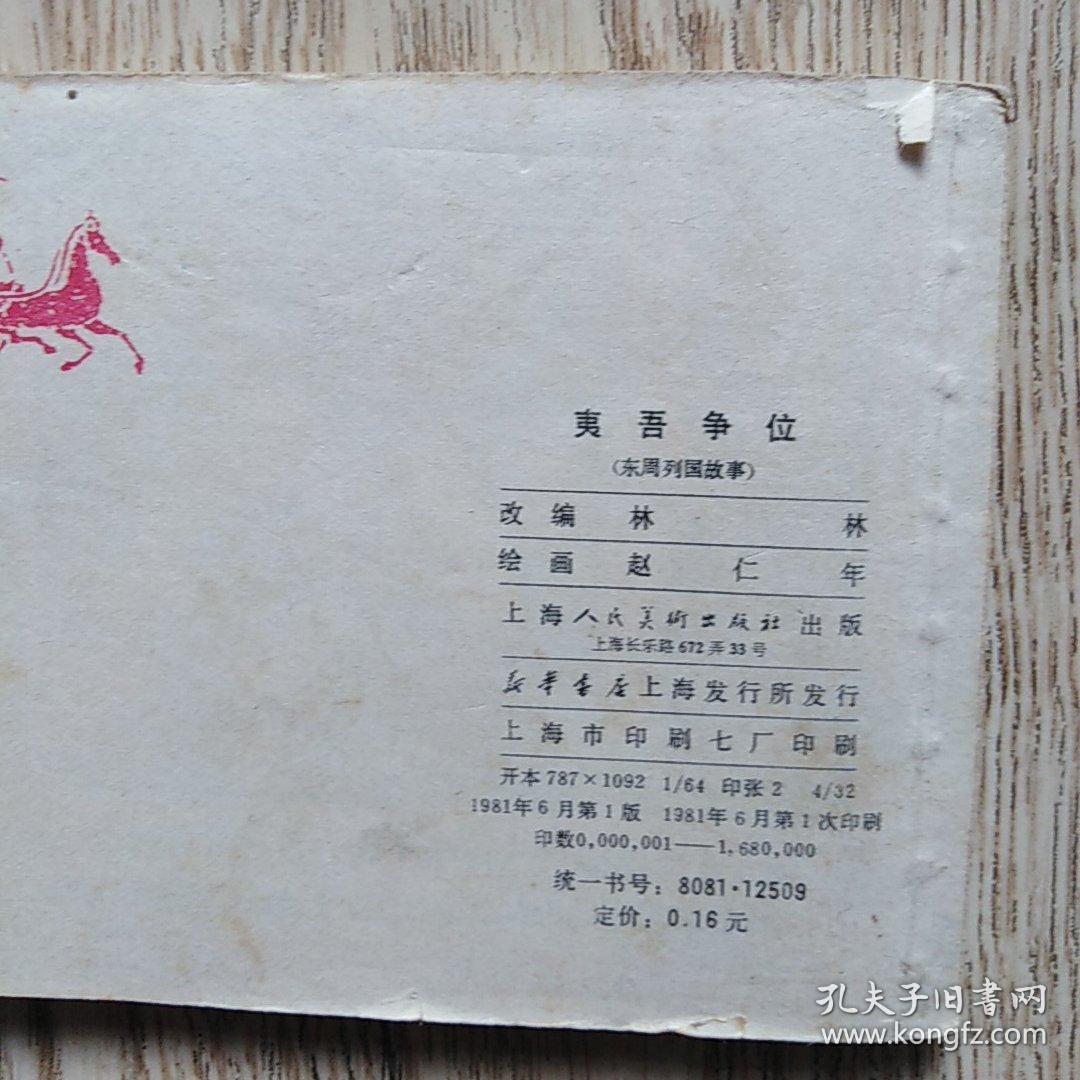 夷吾争位
(东周列国故事)
改编 林 林
绘画 赵 仁 年
上海人民美術出版社 出版
上海长乐路672弄33号
新华书店上海发行所发行
上海市印刷七厂印刷
开本787×1092 1/64 印张2 4/32
1981年6月第1版 1981年6月第1次印刷
印数0,000,001——1,680,000
统一书号：8081·12509
定价：0.16元
孔夫子旧书网
www.kongfz.com